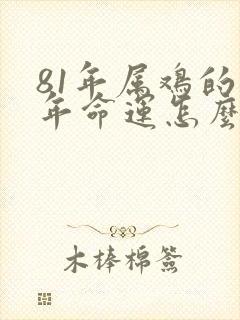 81年属鸡的
年命运怎麼
木棒棉签